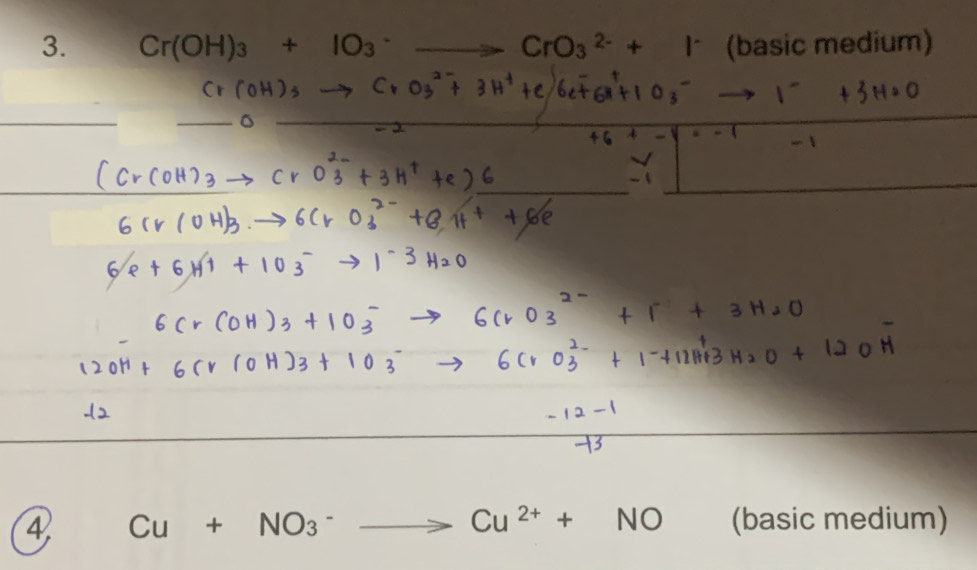 3. Cr(OH)3 + IO3 - ⟶ CrO3 2- + I- (basic medium)
Cr(OH)3 → CrO3 2- + 3H+ + e / 6e- + 6H+ + IO3 - → I- + 3H2O
0 -2 +6 + -1 = -1 -1
-1
(Cr(OH)3 → CrO3 2- + 3H+ + e)6
6Cr(OH)3 → 6CrO3 2- + H+ + 6e
6e + 6H+ + IO3 - → I- 3H2O
6Cr(OH)3 + IO3 - → 6CrO3 2- + I- + 3H2O
12OH- + 6Cr(OH)3 + IO3 - → 6CrO3 2- + I- + 12H+ + 3H2O + 12OH-
-12 -12 -1
-13
4. Cu + NO3 - ⟶ Cu 2+ + NO (basic medium)